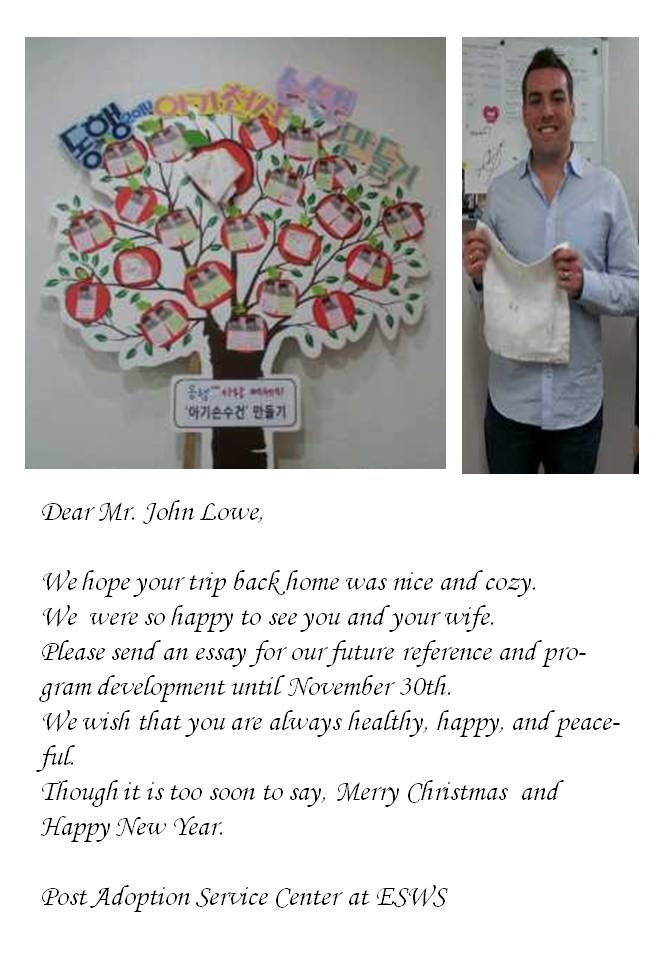 동행2011 아기천사 손수건 만들기
동행 사랑
'아기손수건' 만들기
Dear Mr. John Lowe,
We hope your trip back home was nice and cozy.
We were so happy to see you and your wife.
Please send an essay for our future reference and pro-
gram development until November 30th.
We wish that you are always healthy, happy, and peace-
ful.
Though it is too soon to say, Merry Christmas and
Happy New Year.
Post Adoption Service Center at ESWS